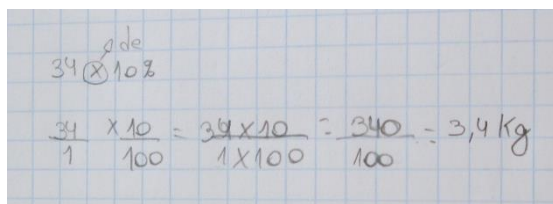 de
34 x 10%
34/1 x 10/100 = 34x10/1x100 = 340/100 = 3,4 Kg